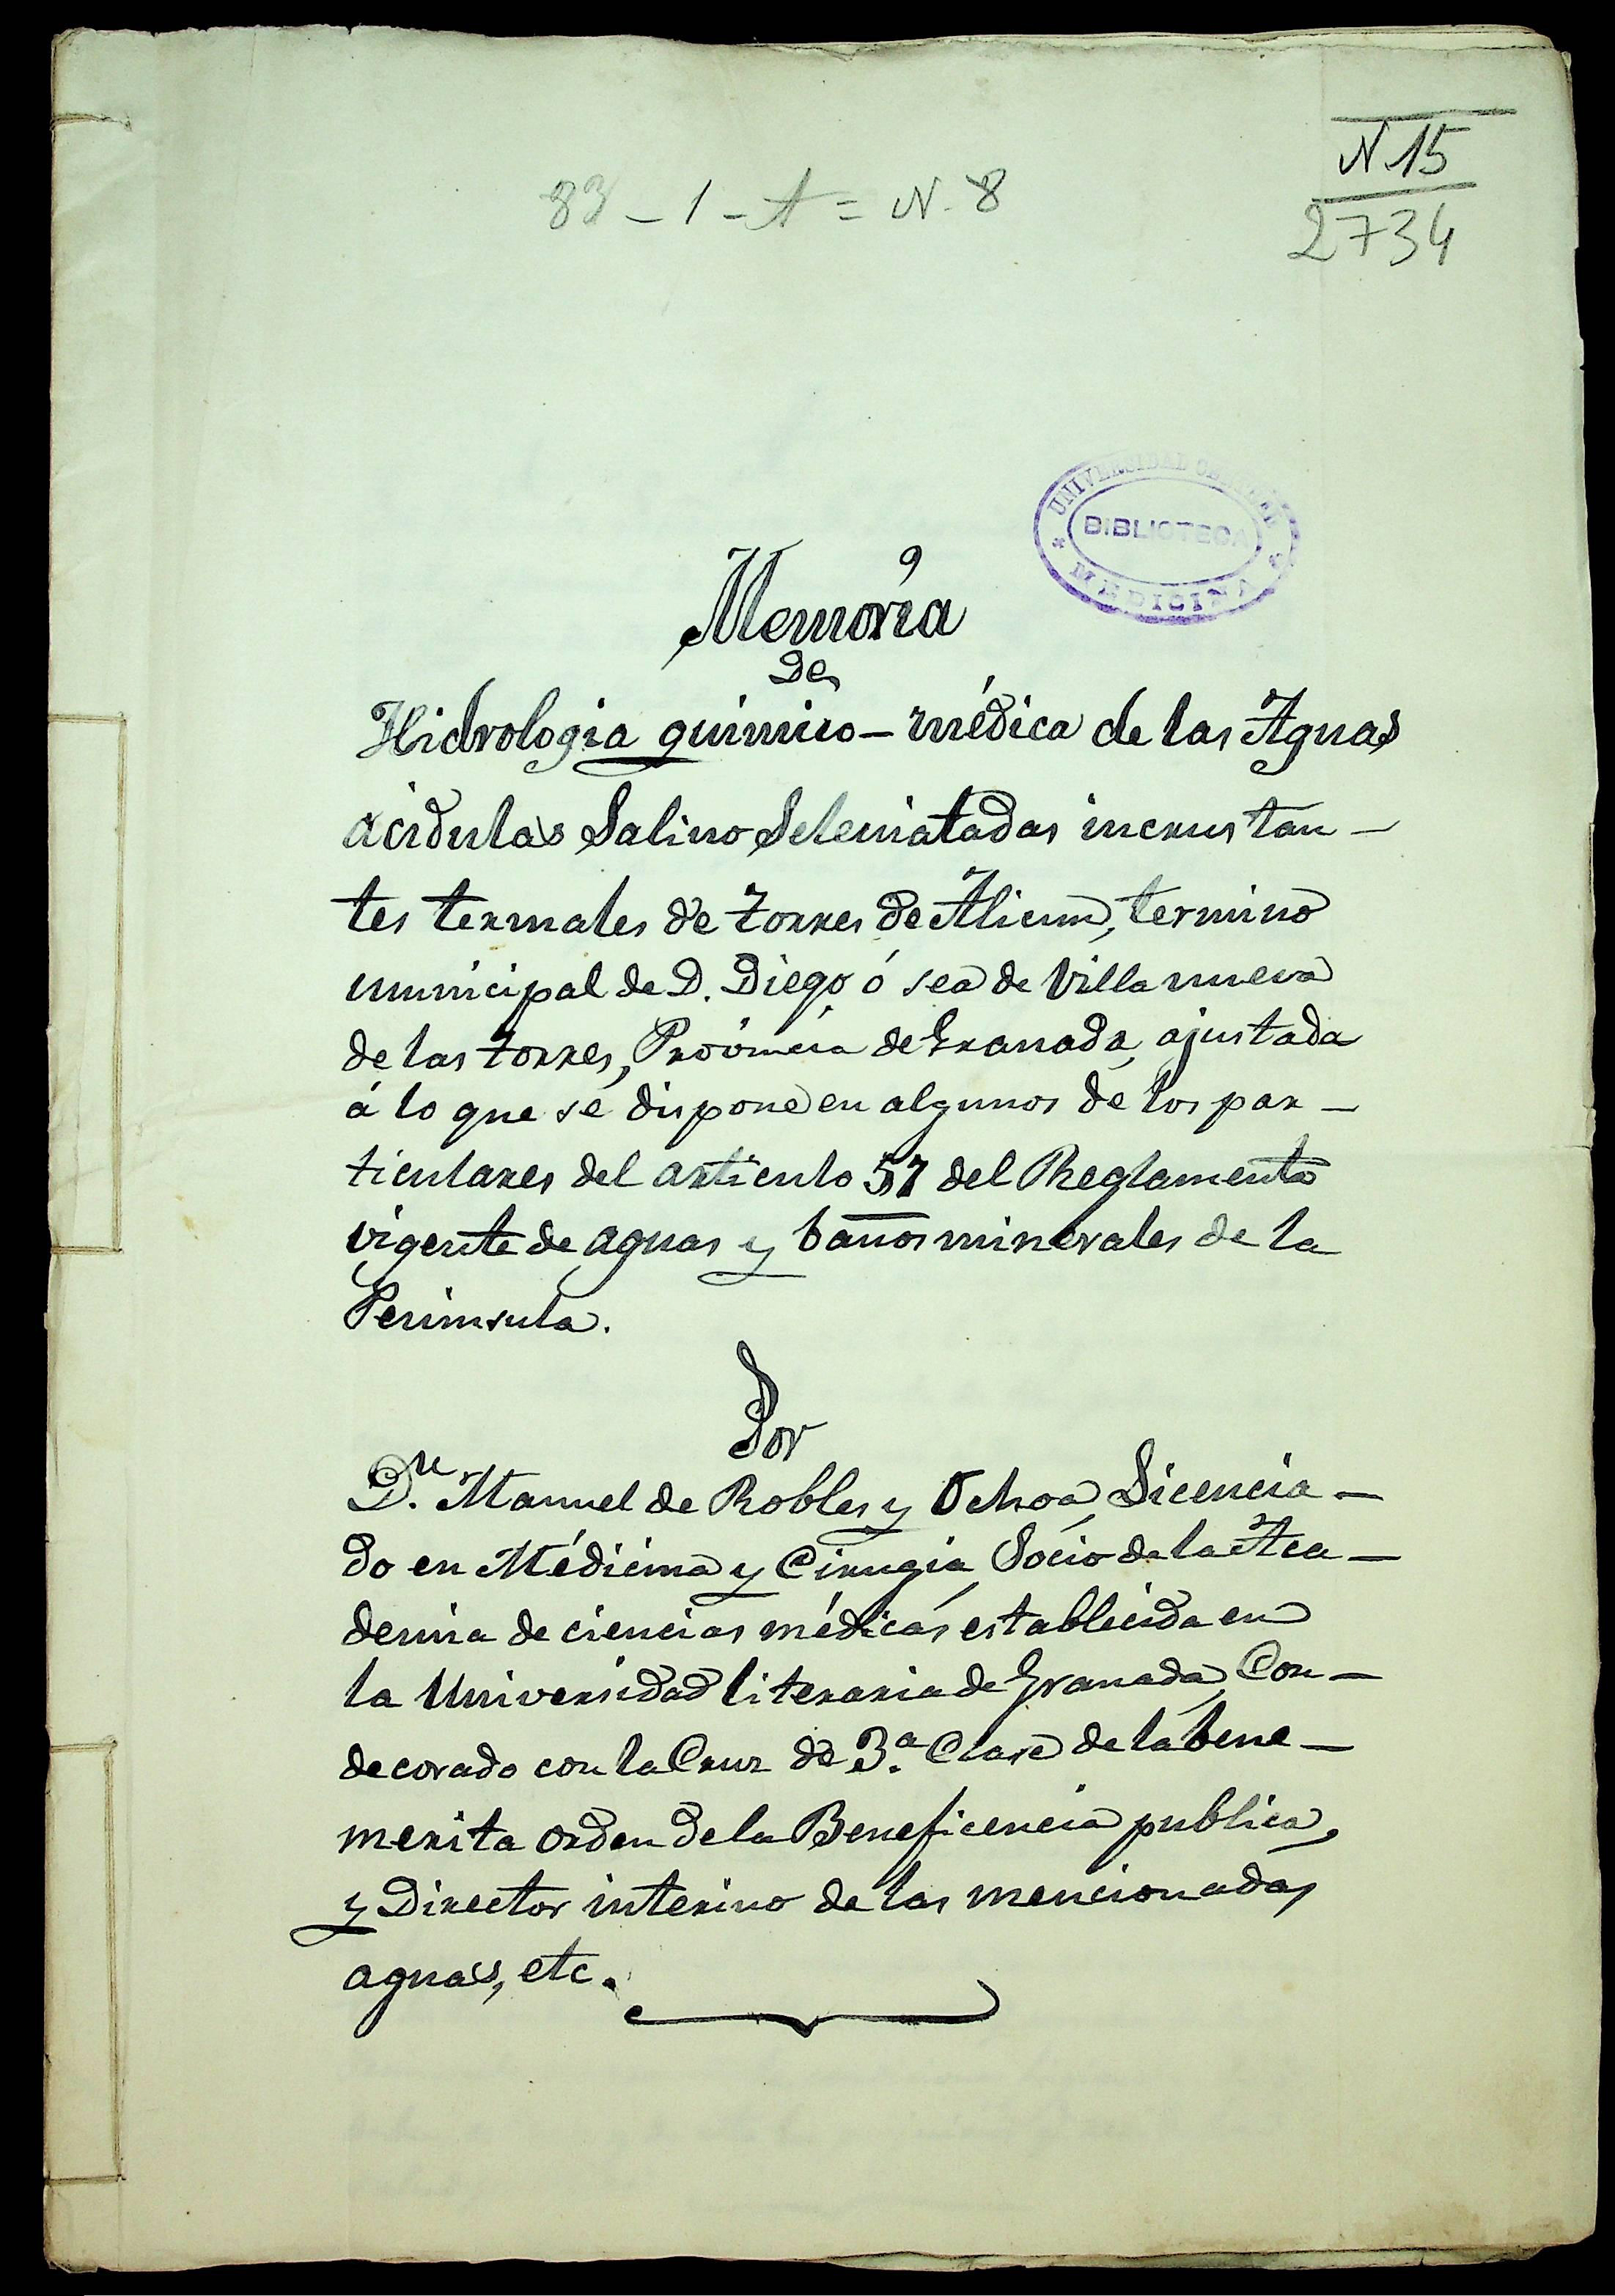 N 15
2734
83 - 1 - A = N. 8
UNIVERSIDAD
BIBLIOTECA
MEDICINA
Memoria
De
Hidrologia quimico-médica de las Aguas
acidulas Salino Seleniatadas incrustan-
tes termales de Torres de Alicun, termino
municipal de D. Diego ó sea de Villanueva
de las torres, Provincia de Granada, ajustada
á lo que se dispone en algunos de los par-
ticulares del articulo 57 del Reglamento
vigente de aguas y baños minerales de la
Peninsula.
Por
Dn. Manuel de Robles y Ochoa, Licencia-
do en Médicina y Cirugia, Socio de la Aca-
demia de ciencias médicas establecida en
la Universidad literaria de Granada, Con-
decorado con la Cruz de 3.a Clase de la bene-
merita orden de la Beneficencia publica,
y Director interino de las mencionadas
aguas, etc.